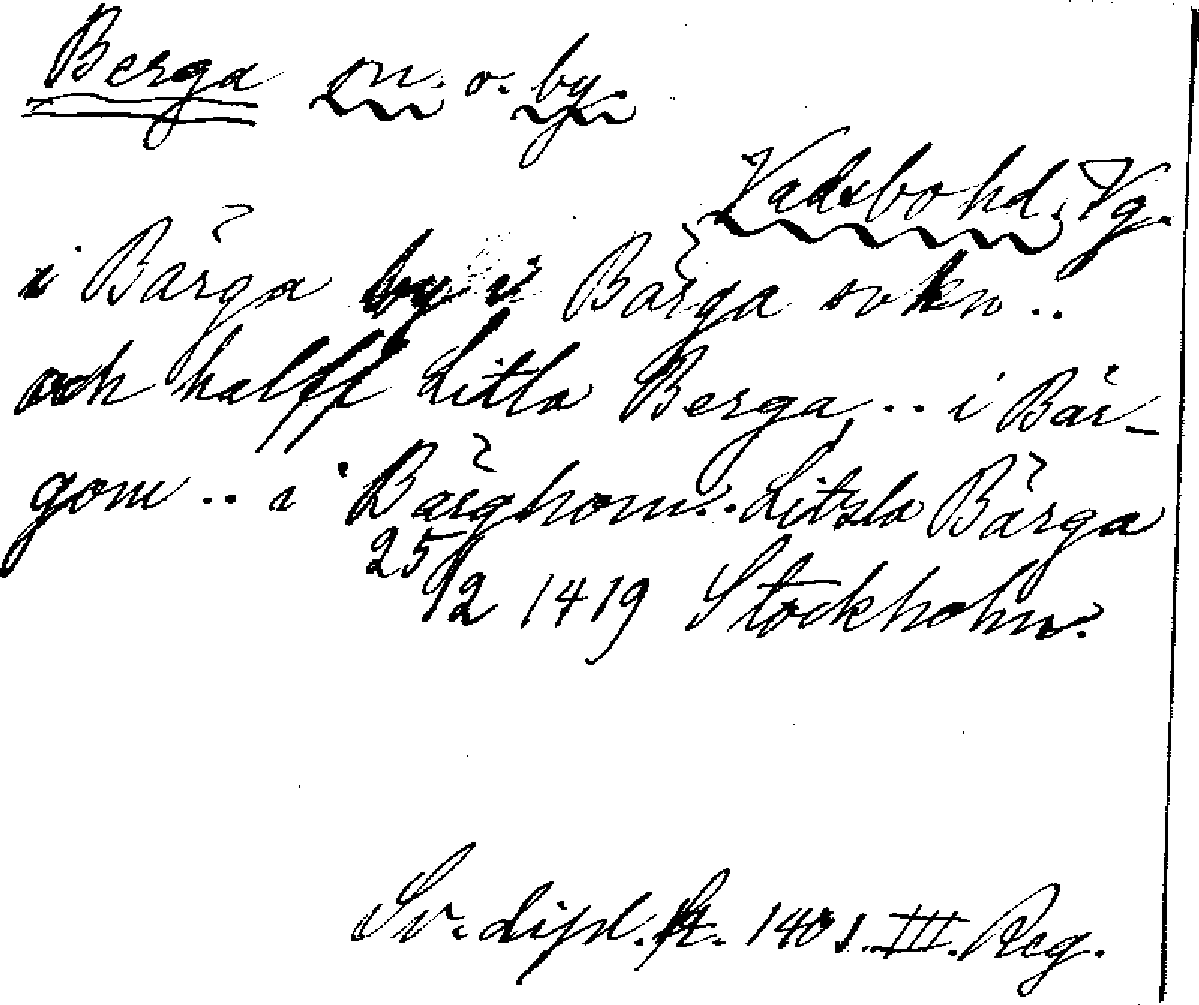 Berga sn. o. by.
Vadsbo hd. Vg.
i Bärga by i Bärga sokn ..
och halff Litla Berga .. i Bär-
gom .. i Bärghom .. Litsla Bärga
25/2 1419 Stockholm.
Sv. dipl. fr. 1401. III. Reg.